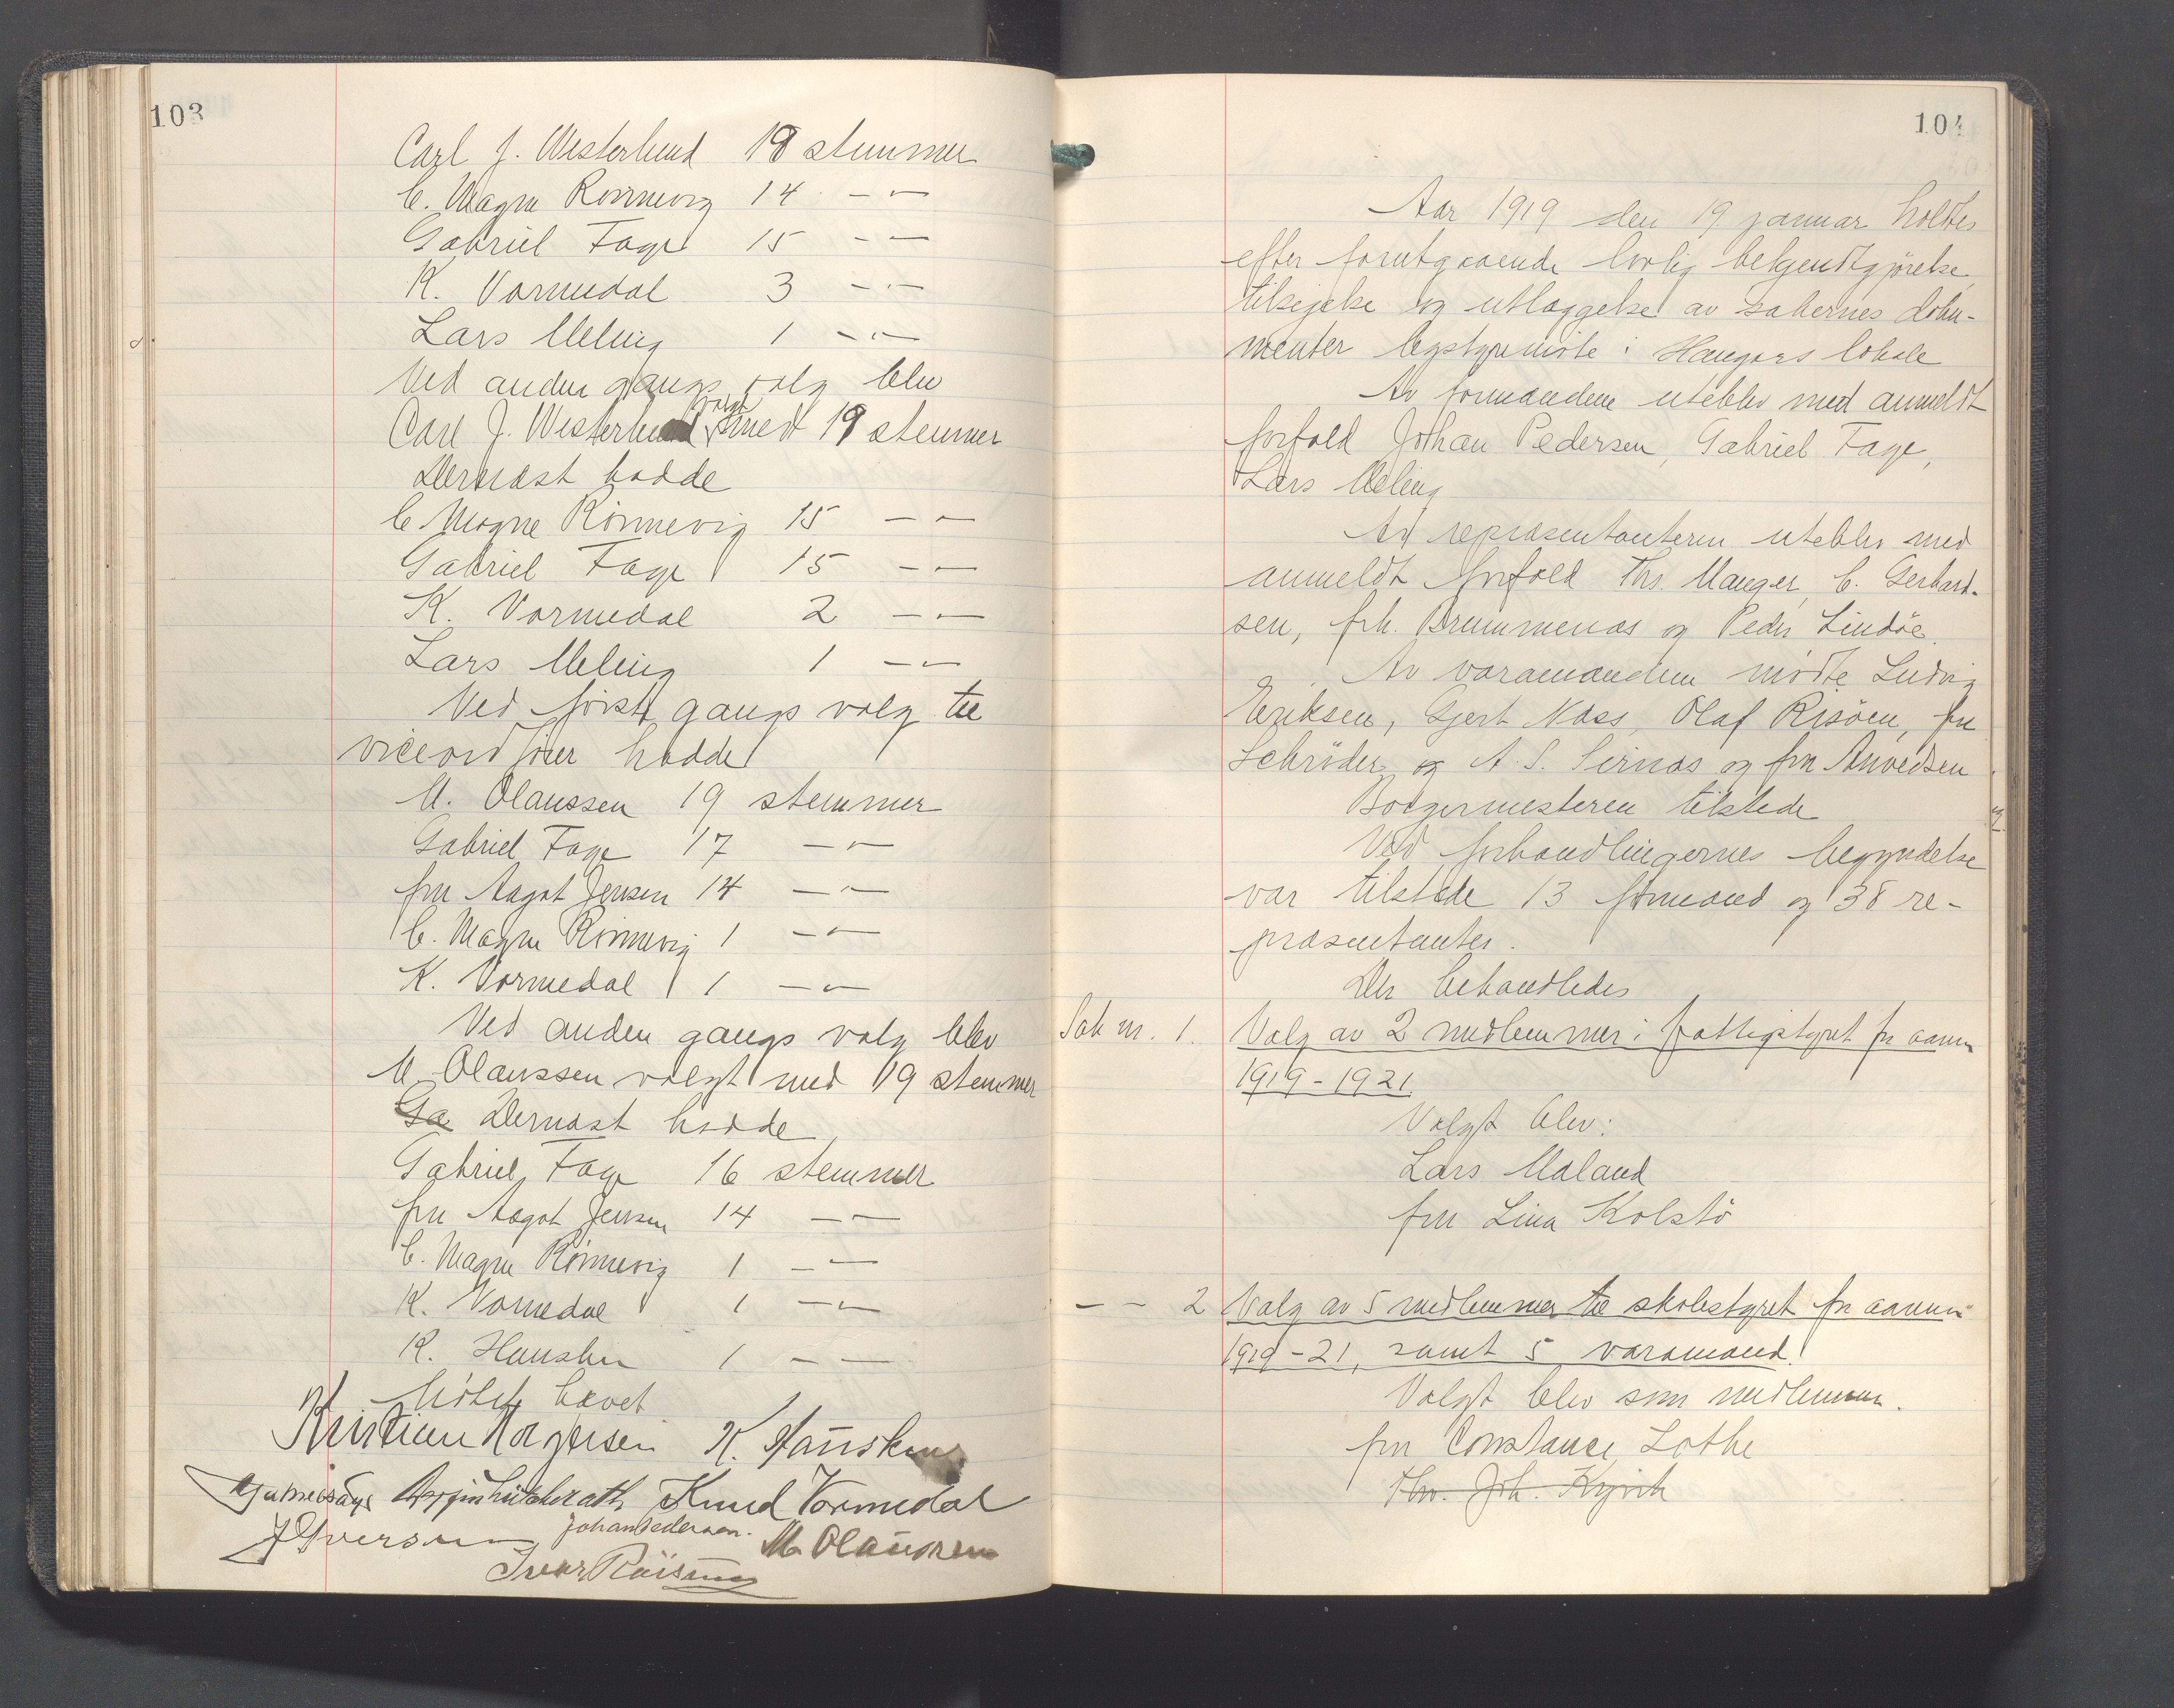 103
Carl J. Westerlund 18 stemmer
C. Magne Rönnevig 14 — " —
Gabriel Fage 15 — " —
K. Vormedal 3 — " —
Lars Meling 1 — " —
Ved anden gangs valg blev
valgt
Carl J. Westerlund med 19 stemmer
Dernæst hadde
C. Magne Rönnevig 15 — " —
Gabriel Fage 15 — " —
K. Vormedal 2 — " —
Lars Meling 1 — " —
Ved første gangs valg til
viceordfører hadde
M. Olaussen 19 stemmer
Gabriel Fage 17 — " —
fru Aagot Jensen 14 — " —
C. Magne Rönnevig 1 — " —
K. Vormedal 1 — " —
Ved anden gangs valg blev
M. Olaussen valgt med 19 stemmer
Ga Dernæst hadde
Gabriel Fage 16 stemmer
fru Aagot Jensen 14 — " —
C. Magne Rönnevig 1 — " —
K. Vormedal 1 — " —
K. Hausken 1 — " —
Mötet hævet
Kristian K. Hausken
Knud Vormedal
J Iversen Johan Pedersen. M. Olaussen
Ivar
104
Aar 1919 den 19 januar holdtes
efter forutgaaende lovlig bekjendtgjörelse,
tilsigelse og utlæggelse av sakernes doku-
menter bystyremöte i Haugars lokale
Av formændene uteblev med anmeldt
forfald Johan Pedersen, Gabriel Fage,
Lars Meling
Av repræsentanterne uteblev med
anmeldt forfald Ths. Manger, C. Gerhard-
sen, frk. Brummenæs og Peder Lindöe.
Av varamændene mödte Ludvig
Eriksen, Gjert Næss, Olaf Risöen, fru
Schröder og A. S. Sirnæs og fru Anvedsen
Borgermesteren tilstede
Ved forhandlingernes begyndelse
var tilstede 13 formænd og 38 re-
præsentanter.
Der behandledes
Sak nr. 1. Valg av 2 medlemmer i fattigstyret for aarene
1919 - 1921.
Valgt blev:
Lars Maland
fru Lina Kolstö
— " — 2 Valg av 5 medlemmer til skolestyret for aarene
1919-21, samt 5 varamænd.
Valgt blev som medlemmer.
fru Constance Lothe
Thv. Joh. Kyvik